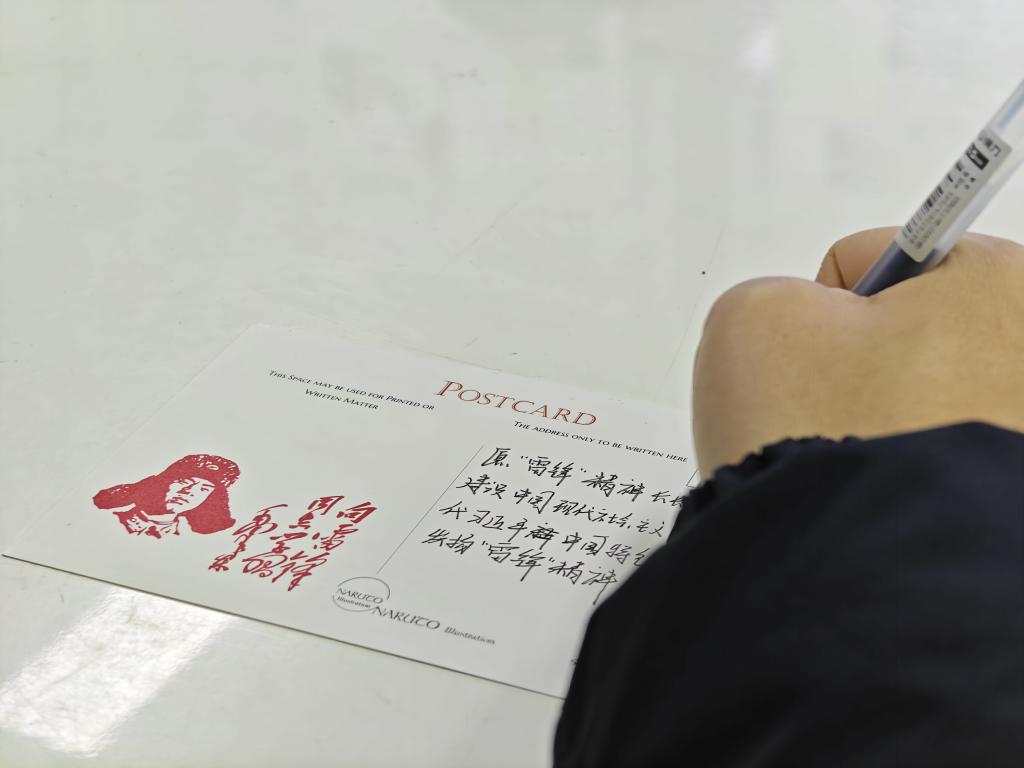 THIS SPACE MAY BE USED FOR PRINTED OR
WRITTEN MATTER
POSTCARD
THE ADDRESS ONLY TO BE WRITTEN HERE
愿“雷锋”精神长
建设中国现代社会主义
代习近平 中国特色
发扬“雷锋”精神
向雷锋
同志学习
毛泽东
NARUTO
Illustration
NARUTO Illustration